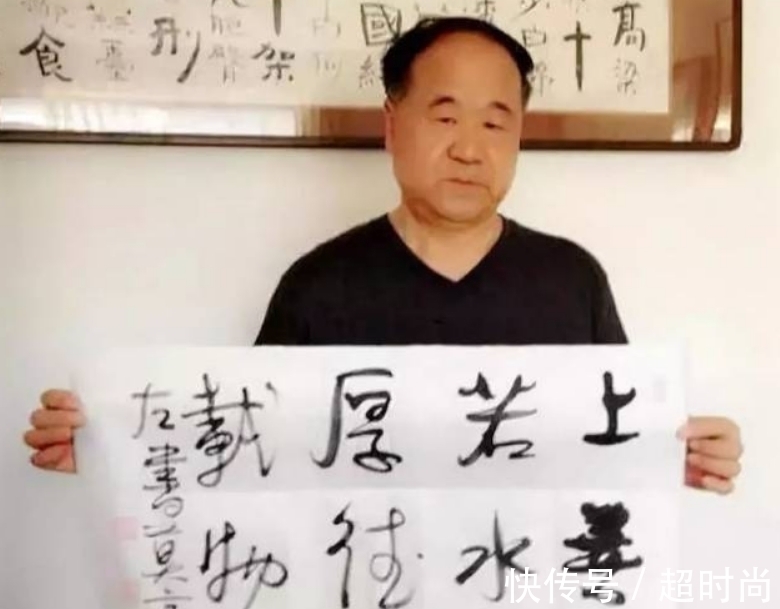 高粱
十
國
架
肥臀
刑
食
上善
若水
厚德
載物
左書莫言
快传号 / 超时尚